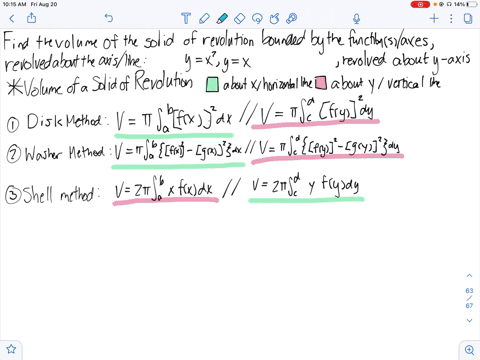 10:15 AM Fri Aug 20
14%
Find the volume of the solid of revolution bounded by the function(s)/axes,
revolved about the axis/line: y = x², y = x , revolved about y-axis
*Volume of a Solid of Revolution about x/horizontal line about y/vertical line
① Disk Method: V = π∫ₐᵇ[f(x)]²dx // V = π∫꜀ᵈ[f(y)]²dy
② Washer Method: V = π∫ₐᵇ{[f(x)]²-[g(x)]²}dx // V = π∫꜀ᵈ{[f(y)]²-[g(y)]²}dy
③ Shell method: V = 2π∫ₐᵇ x f(x)dx // V = 2π∫꜀ᵈ y f(y)dy
63
/
67